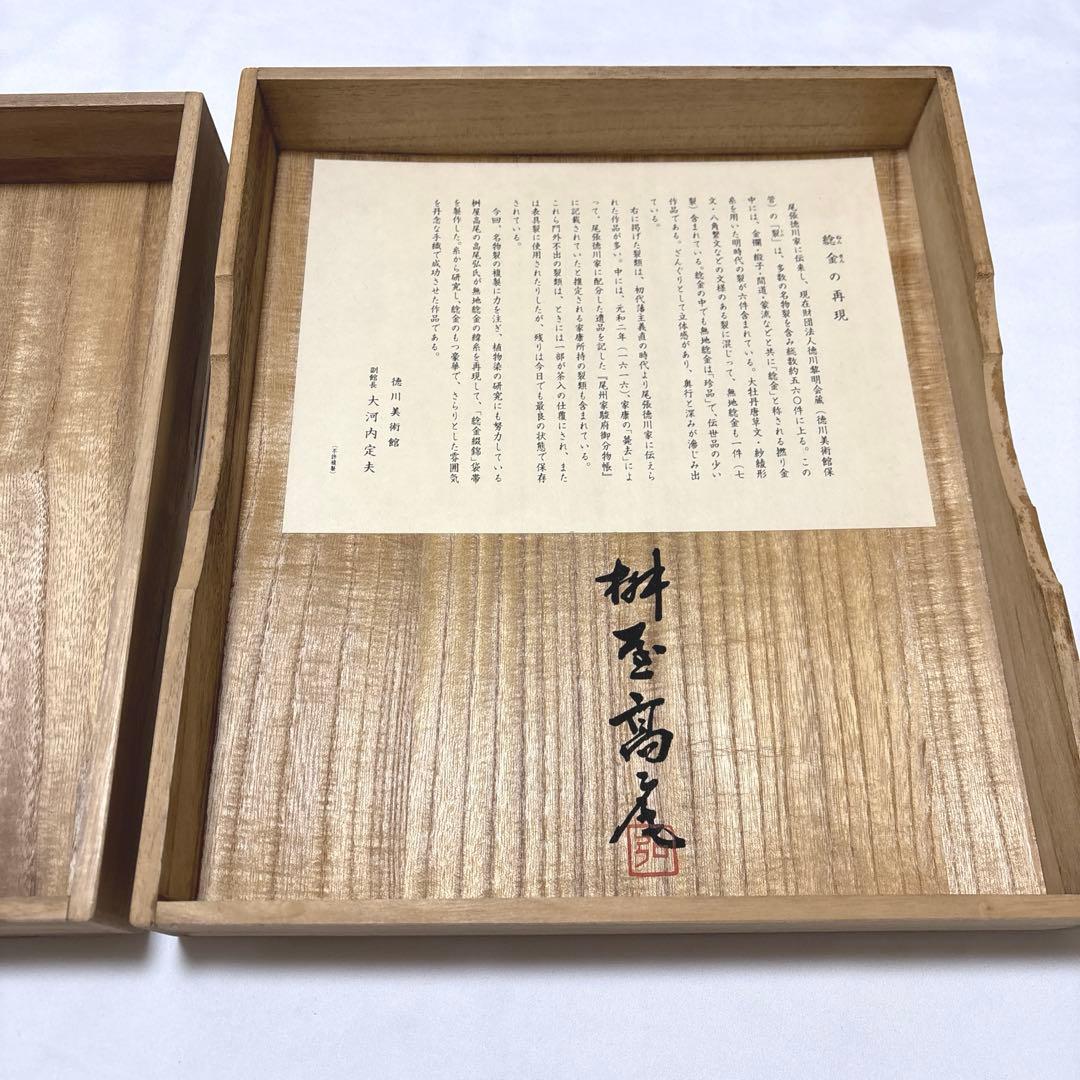 稔金の再現
ねんきん
尾張徳川家に伝来し、現在財団法人徳川黎明会蔵(徳川美術館保
管)の「裂」は、多数の名物裂を含み総数約五六〇件に上る。この
中には、金襴・緞子・間道・蒙流などと共に「稔金」と称される撚り金
糸を用いた明時代の裂が六件含まれている。大牡丹唐草文・紗綾形
文・八角繋文などの文様のある裂に混じって、無地稔金も一件(七
裂)含まれている。稔金の中でも無地稔金は「珍品」で、伝世品の少い
作品である。ざんぐりとして立体感があり、奥行と深みが滲じみ出
ている。
右に掲げた裂類は、初代藩主義直の時代より尾張徳川家に伝えら
れた作品が多い。中には、元和二年(一六一六)、家康の「薨去」によ
って、尾張徳川家に配分した遺品を記した『尾州家駿府御分物帳』
に記載されていたと推定される家康所持の裂類も含まれている。
これら門外不出の裂類は、ときには一部が茶入の仕覆にされ、また
は表具裂に使用されたりしたが、残りは今日でも最良の状態で保存
されている。
今回、名物裂の複製に力を注ぎ、植物染の研究にも努力している
桝屋高尾の高尾弘氏が無地稔金の緯糸を再現して、「稔金綴錦」袋帯
を製作した。糸から研究し、稔金のもつ豪華で、さらりとした雰囲気
を丹念な手織で成功させた作品である。
徳川美術館
副館長 大河内定夫
(不許複製)
桝屋高尾
弘